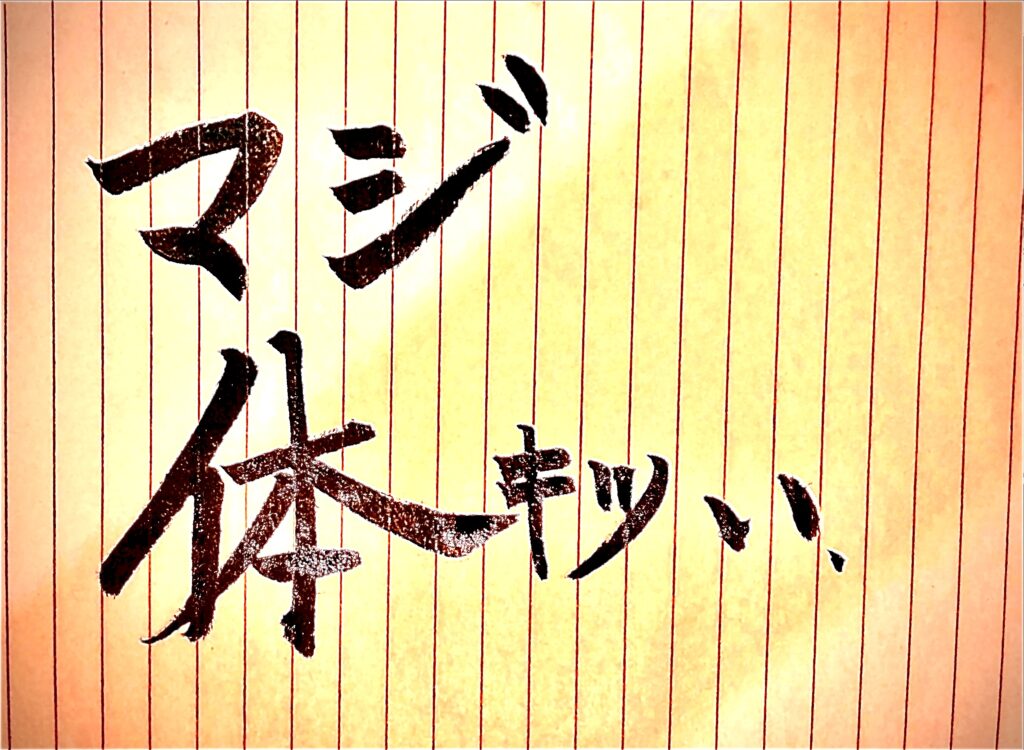 マジ
体キツい、